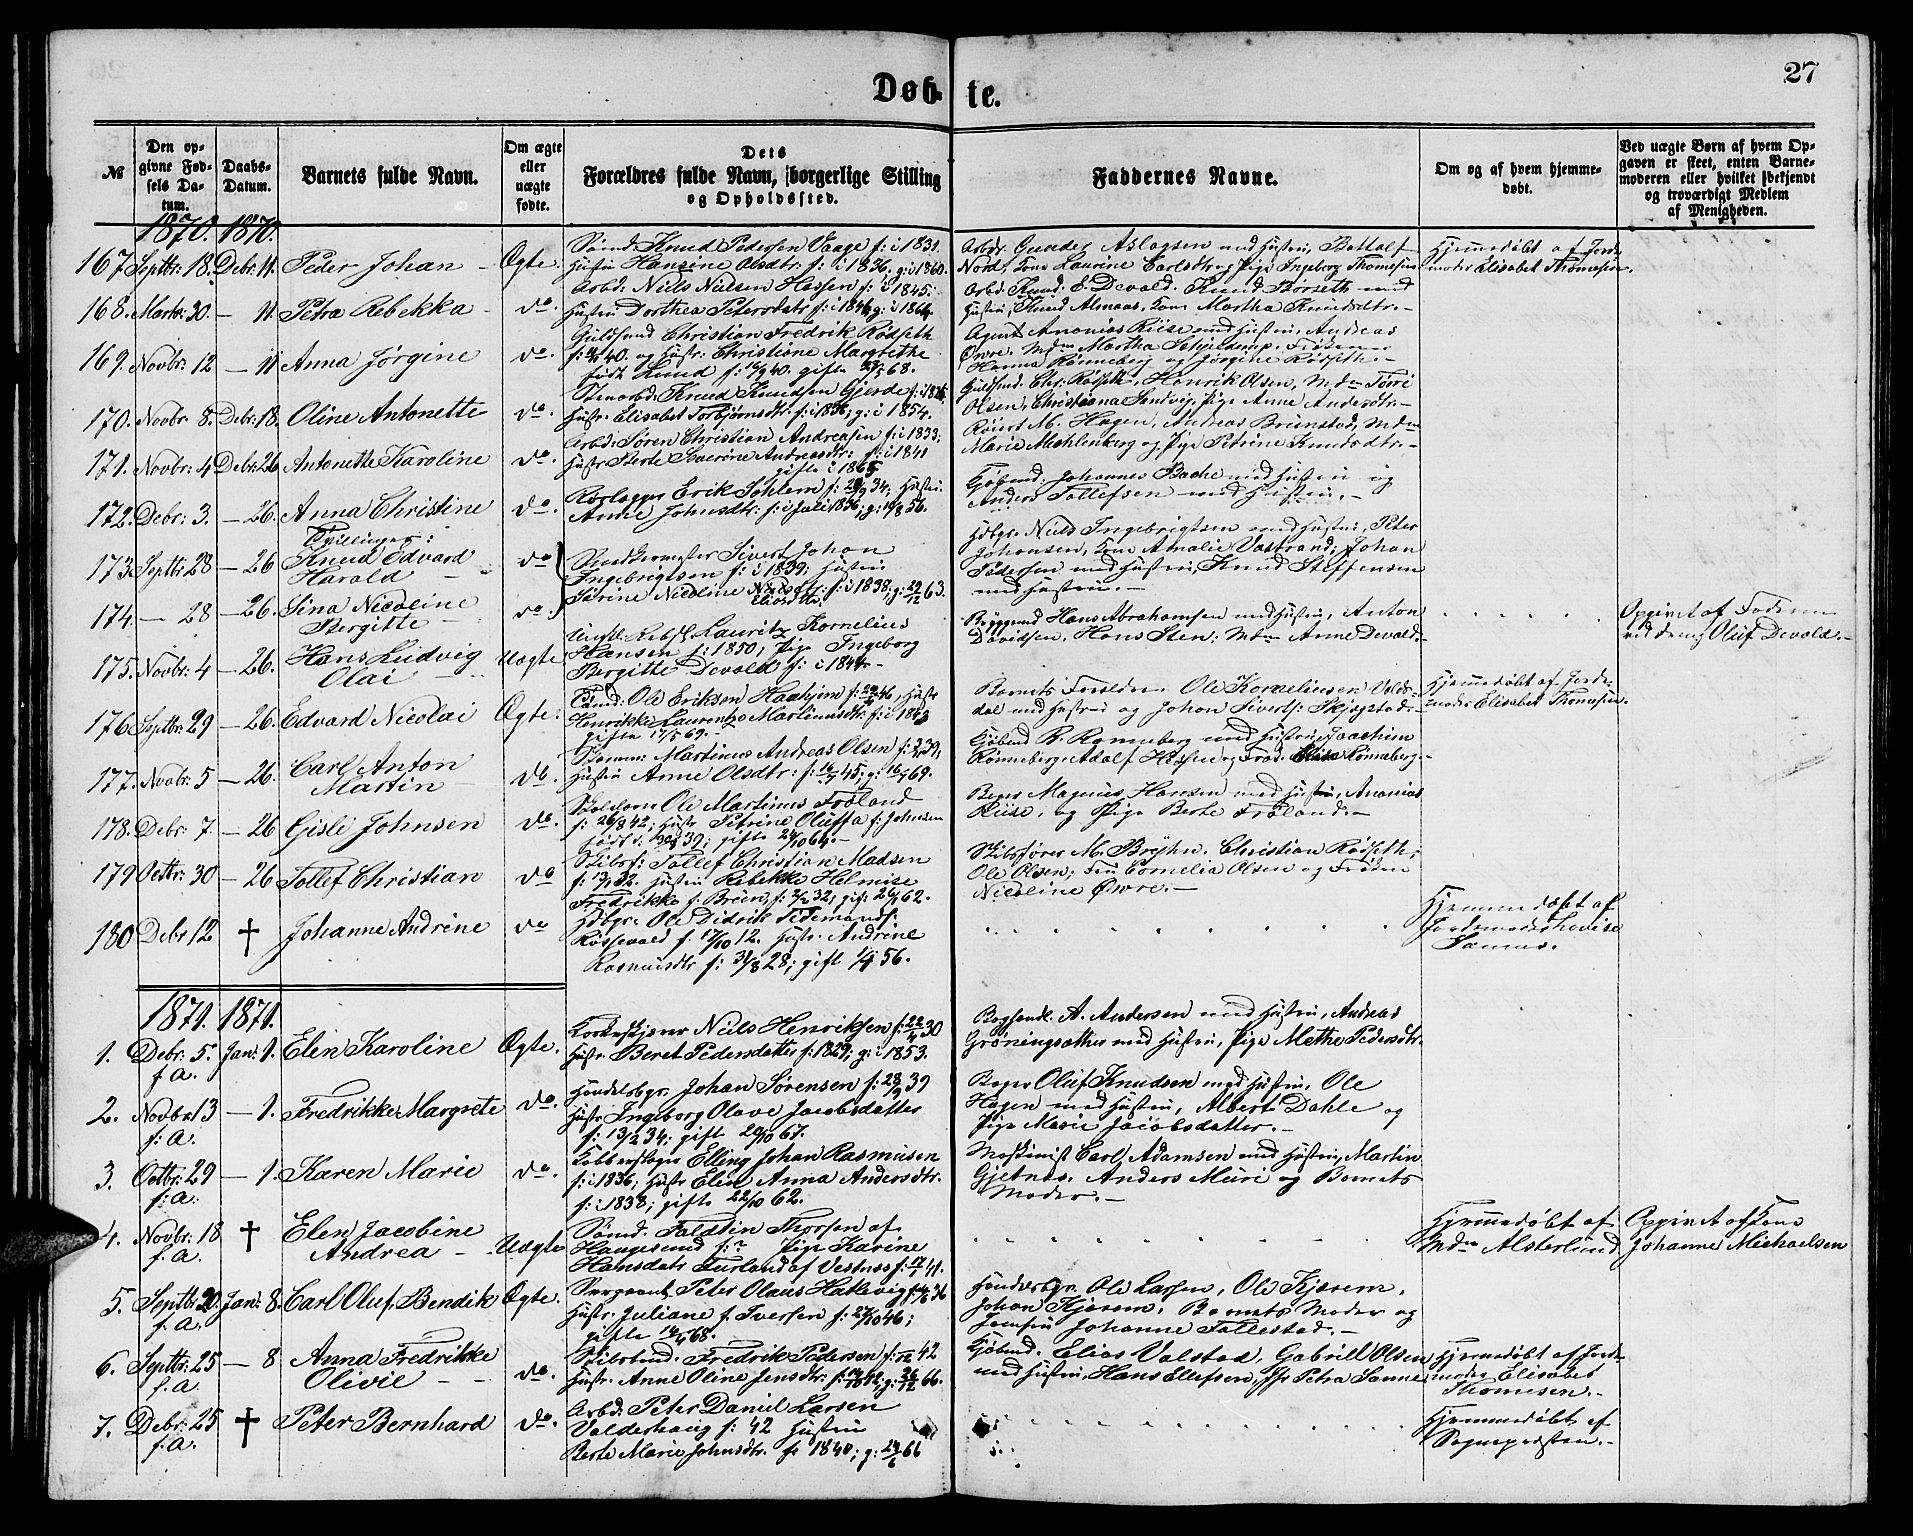 Døbte.
27
№
Den opgivne Fødsels Datum.
Daabs-Datum.
Barnets fulde Navn.
Om ægte eller uægte fødte.
Dets Forældres fulde Navn, borgerlige Stilling og Opholdssted.
Faddernes Navne.
Om og af hvem hjemmedøbt.
Ved uægte Børn af hvem Opgaven er skeet, enten Barnemoderen eller hvilket bekjendt og troværdigt Medlem af Menigheden.
1870. 1870.
167 Septbr: 18. Debr: 11. Peder Johan Ægte.
Sømd. Knud Pedersen Vaage f: i 1831.
Hustru Hansine Olsdtr: f: i 1836. g: i 1860.
Arbd: Gunder Aslagsen med Hustru,
Nord, Kone Laurine Carlsdtr, Pige Ingeborg Thomesen
Hjemmedøbt af Jordemoder Elisabet Thomesen.
168. Marts: 30. — 11. Petra Rebekka do.
Arbd: Niels Nielsen Hessen f: i 1845.
Hustru Dorthea Petersdatr f: i 1846, g: i 1864.
Arbd. Knud E. Devold. Knud Borseth med
Hustru, Knud Almaas, Kone Martha Knudsdtr.
169. Novbr: 12 — 11 Anna Jørgine do.
Guldsmd Christian Fredrik Rødseth
40. og Hustr: Christiane Margrethe
født Lund f: 16/9 40. gifte 68.
Agent Ananias Riise med Hustru, Andreas
Øvre, Mdm Martha Schjelderup, Frøkener
Hanna Rønneberg og Jørgine Rødseth.
170. Novbr 8. Debr: 18. Oline Antonette do.
Knud Knudsen Gjerde f: i 1826
Hustr. Elisabet Torbjørnsdtr. f: i 1836; g: i 1854.
Guldsmd. Chr. Rødseth, Henrik Olsen, Mdm
Olsen, Christiana Sandvig, Pige Anne Andersdtr.
171. Novbr: 4 Debr: 26 Antonette Karoline do.
Arbd: Søren Christian Andreasen f: i 1833;
Hustr Berte Severine Andreasdtr: f: i 1841
gifte i 1865
M. Hagen, Andreas Brunstad, Mdm
Marie Mechlenberg og Pige Petrine Knudsdtr.
172. Debr: 3. — 26. Anna Christine do.
Erik Sohlem f: 34; Hustru
Anne Johnsdtr: f: i Juli 1836; g: 56.
Kjøbmd: Johannes Bache med Hustru og
Anders Tollefsen med Hustru.
Tvillinger:
173. Septbr: 28 — 26 Knud Edvard Harald do
174. — 28 — 26. Sina Nicoline Bergitte do.
Sivert Johan
Ingebrigtsen f: i 1839; Hustru
Sørine Nicoline f: i 1838; g: 29/12 63.
Hdbgr. Niels Ingebrigtsen med Hustru, Peter
Johansen, Kone Amalie Vastrand, Johan
Pedersen med Hustru, Knud Steffensen
med Hustru.
175. Novbr: 4 — 26. Hans Ludvig Olai Uægte
Lauritz Kornelius
Hansen f: 1850; Pige Ingeborg
Bergitte Devold f: i 1844.
Byggmd Hans Abrahamsen med Hustru, Anton
Davidsen, Hans Sten. Mdm Anne Devold.
Opgivet af Faderen
Oluf Devold.
176 Septbr: 29 — 26. Edvard Nicolai Ægte.
Ole Eriksen Haahjem f: 46, Hustr
Henrikke Laurentze Martinusdtr: f: i
gifte 17/5 69.
Barnets Forældre. Ole Kornelinsen Valderdal
med Hustru og Johan Sivertsen
Hjemmedøbt af Jordemoder Elisabet Thomesen.
177. Novbr: 5 — 26. Carl Anton Martin do.
Martinus Andreas Olsen f: 39;
Hustru Anne Olsdtr: f: 45; g: 69.
Kjøbmd R. Rønneberg med Hustru, Joachim
Rønneberg, Adolf Hessen og Frøk. Elise Rønneberg.
178. Debr: 7. — 26 Gisle Johnsen do.
Ole Martinus Frøland
f: 26/8 42; Hustr Petrine Oluffa f: Johnsen
født: 39; gifte 24/10 64.
Bager Magnus Hansen med Hustru, Ananias
Riise, og Pige Berte Frøland.
179 Octbr: 30 — 26 Tollef Christian do
Skibsf: Tollef Christian Madsen
f: 32. Hustru Rebekke Helmise
Fredrikke f. Brein, f: 32; gif: 26/1 62.
Skibsfører M. Brøhn, Christian Rødseth,
Ole Olsen, Fru Cornelia Olsen og Frøken
Nicoline Øvre.
180 Debr 12 † Johanne Andrine do
Hdbgr. Ole Didrik Tidemandf:
Røssevold f. 17/10 12. Hustr. Andrine
Rasmusdtr f: 31/8 28; gift 56.
Hjemmedøbt af
Sannes.
1871. 1871.
1. Debr: 5. f. a. Jan: 1. Elen Karoline Ægte.
Niels Henriksen f: 22/4 30
Hustr. Beret Pedersdatter f: 1829; g: i 1853.
A. Andersen med Hustru, Andreas
Grøningsæther med Hustru, Pige Methe Pedersdtr.
2. Novbr 13 f: a. — 1. Fredrikke Margrete do.
Handelsbgr. Johan Sørensen f: 39
Hustr Ingeborg Olave Jacobsdatter
f: 13/2 34; gift 20/10 67.
Bager Oluf Knudsen med Hustru, Ole
Hagen med Hustru, Albert Dahle og
Pige Marie Jacobsdatter.
3. Octbr: 29 f: a. — 1. Karen Marie do.
Kobberslager Elling Johan Rasmusen
f: i 1836; Hustr Elen Anna Andersdtr.
f: i 1838; gift 22/10 62.
Maskinist Carl Adamsen med Hustru, Martin
Gjetnes. Anders Muri og Barnets
Moder.
4. Novbr: 18 f. a. † Elen Jacobine Andrea Uægte
Sømd. Falstin Thorsen af
Haugesund f: ? Pige Karine
Hansdatr Furland af Vestnes f: 41.
Hjemmedøbt af
Mdm Alsterlund
Opgivet af Kone
Johanne Michaelsen
5. Septbr 20. f. a. Jan: 8. Carl Oluf Bendik Ægte.
Sergeant Peter Olaus Hatlevig f: 36
Hustr. Juliane f. Iversen f: 27/10 46;
gifte 68.
Handelsbgr. Ole Larsen, Ole Kjærem,
Johan Kjærem, Barnets Moder og
Jomfru Johanne Tollestad.
6. Septbr: 25 f. a. — 8 Anna Fredrikke Olivie do.
Skibstmd. Fredrik Pedersen f: 42
Hustr. Anne Oline Jensdtr: f: 42, g: 26/12 66.
Kjøbmd. Elias Valstad, Gabriell Olsen
med Hustru, Hans Ellefsen, Jfr Petra Sanne
Hjemmedøbt af Jordemoder Elisabet
Thomesen.
7. Debr: 25 f: a. † Peter Bernhard do.
Arbd: Peter Daniel Larsen
Valderhaug f: 42 Hustru
Berte Marie Johnsdtr. f: 1840; g: 24/6 66
Hjemmedøbt af
Sognepresten.